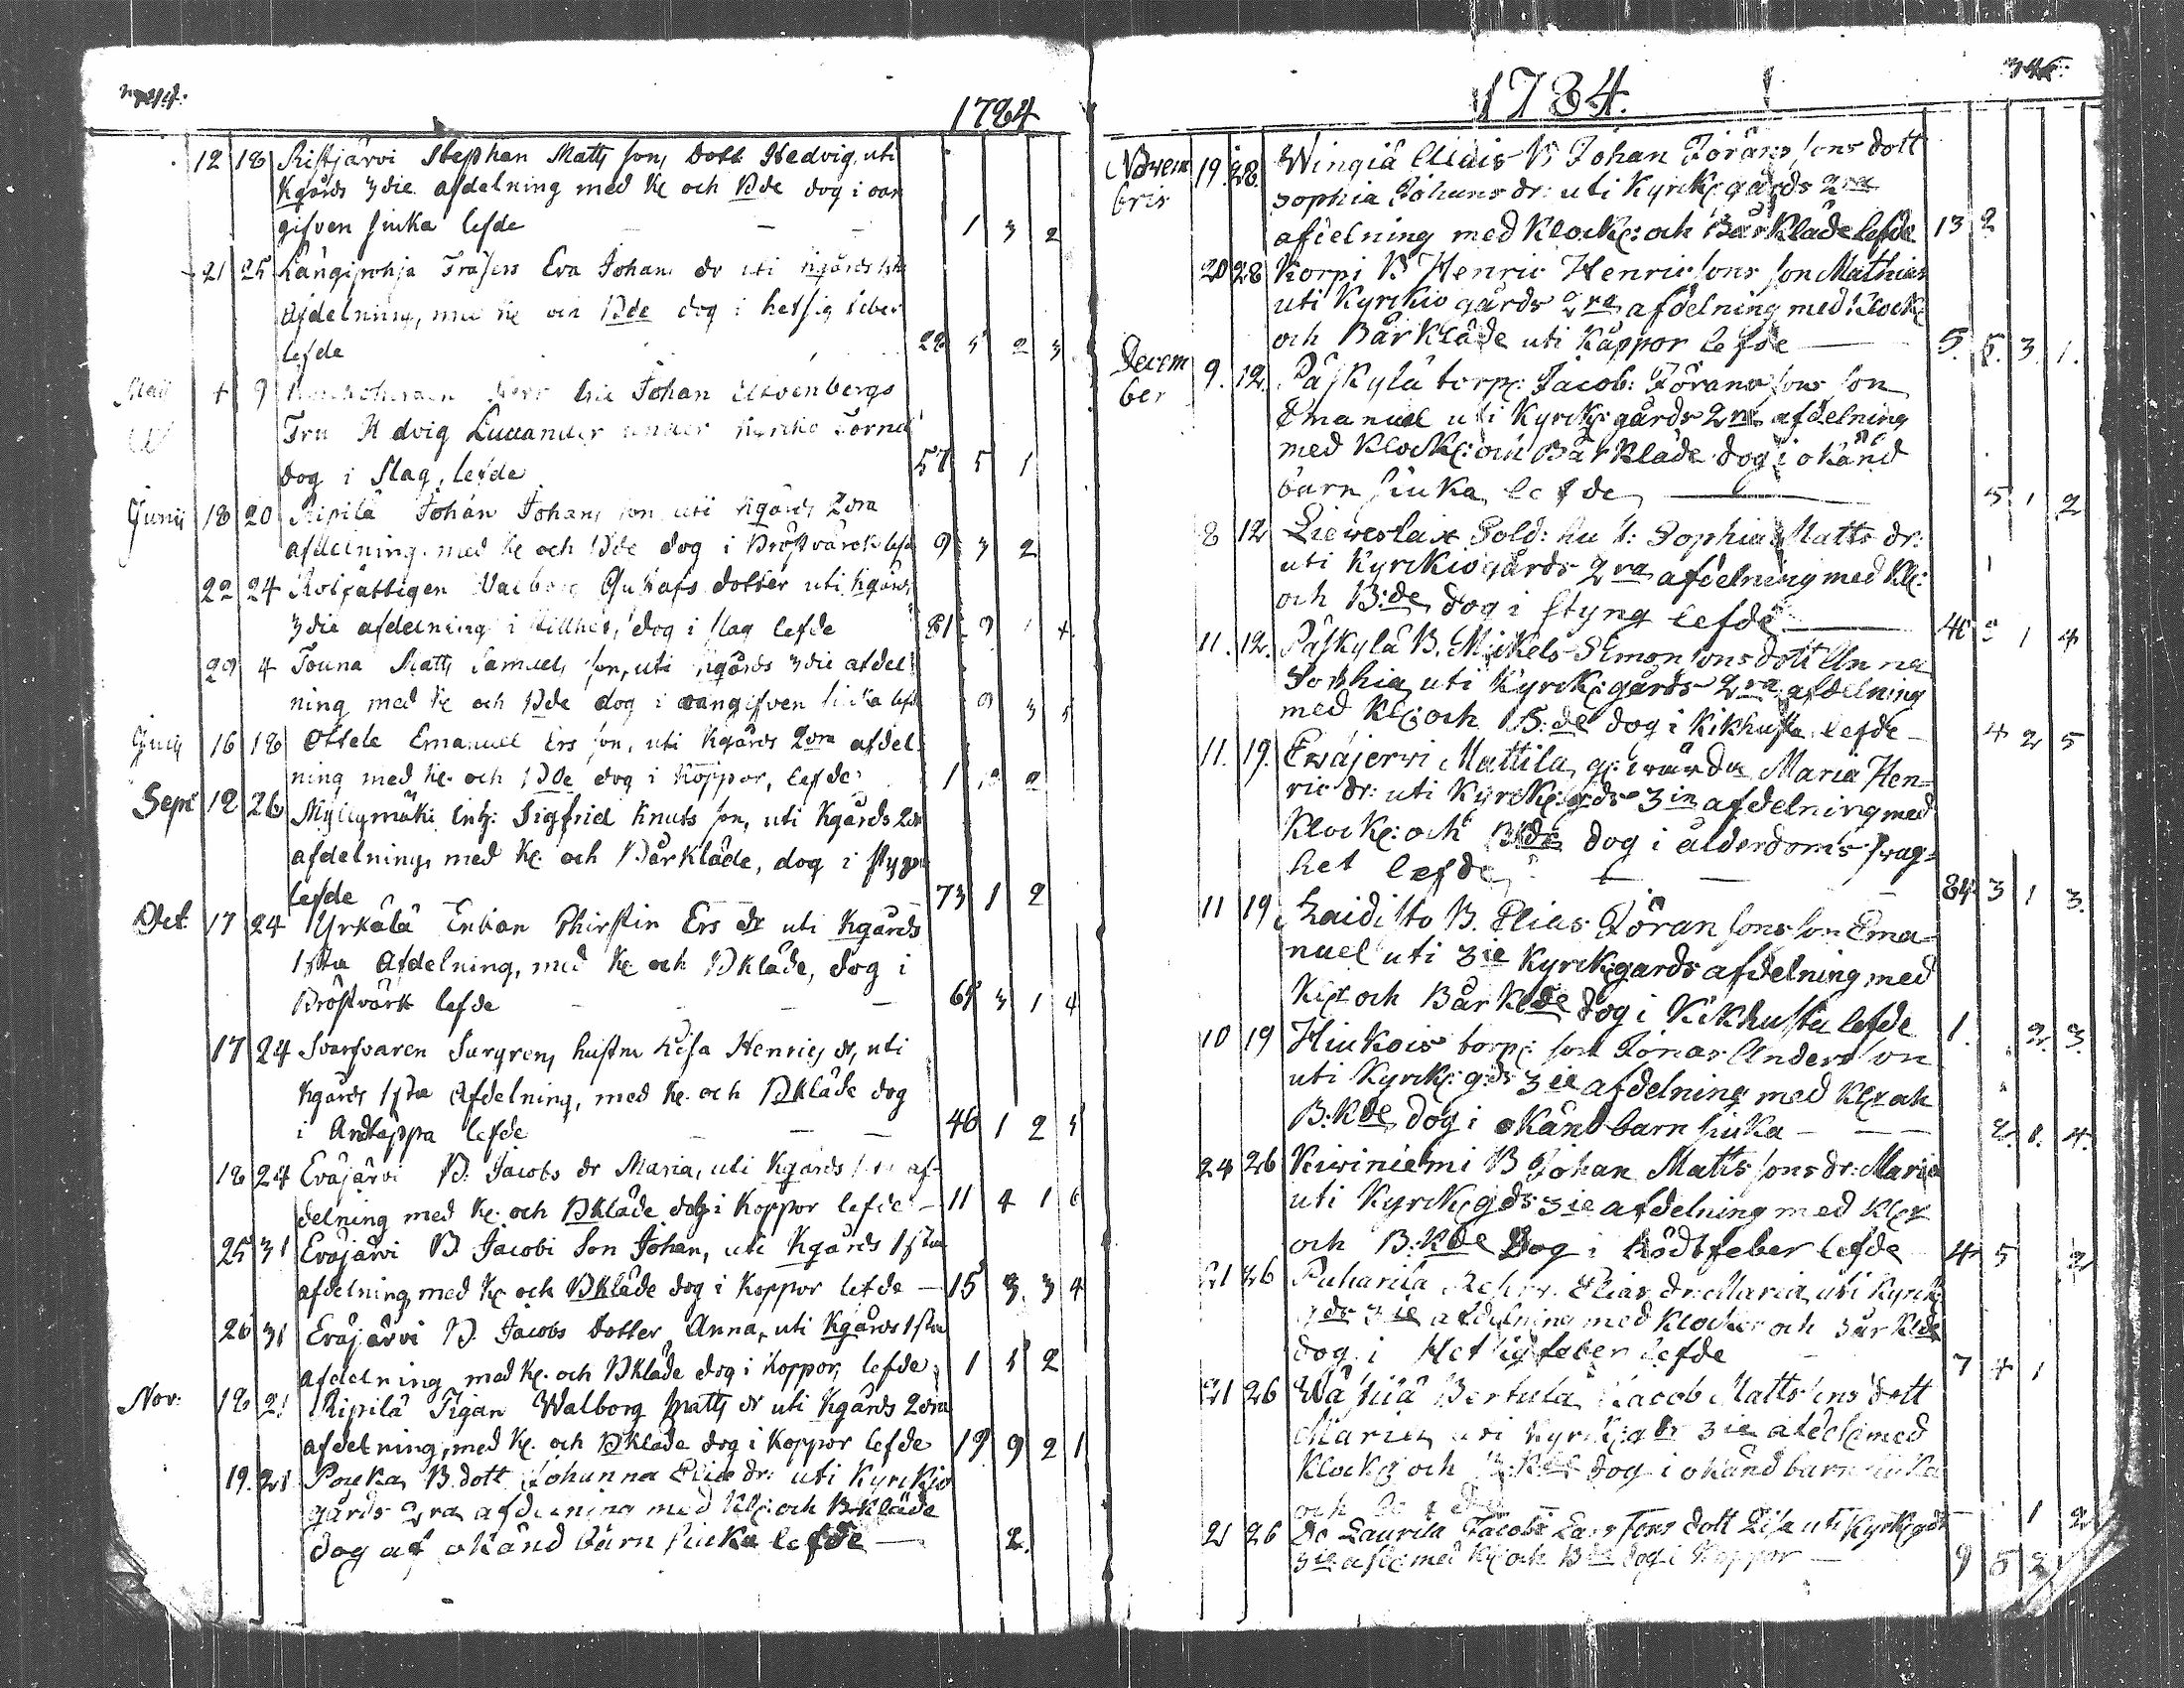 1784
12 18 Ristjärvi Stephan Matts sons Dott Hedvig, uti
Kgårds 3die afdelning med Kl och Bde dog i oan
gifven siuka lefde — — — 1 3 2
21 25 Eva Johans dr uti Kgårds 1sta
Afdelning, med Kl och Bde dog i hetsig feber
lefde 22 5 2 3
Maii 4 9 Herr Johan
Fru Hedvig Lucander under Kyrkio
dog i slag, lefde 57 5 1
Junii 18 20 Ripilä Johan Johans son uti Kgårds 2dra
afdelning med Kl och Bde dog i Bröstvärck lefde 9 3 2
22 24 Rotfattigen Valborg Gustafs dotter uti Kgårds
3die afdelning i stillhet, dog i slag lefde 81 9 1 4
29 4 Jouna Matts Samuels son, uti Kgårds 3die afdel
ning med Kl och Bde dog i oangifven siuka lefde 9 3 5
Julij 16 18 Ottele Emanuel Ers son, uti Kgårds 2dra afdel
ning med Kl. och Bde dog i Koppor, lefde 1
Sept 12 26 Myllymäki Enk: Sigfrid Knuts son, uti Kgårds 2dra
afdelning, med Kl. och Bårkläde, dog i styng
lefde 73 1 2
Oct 17 24 Yrkälä Enkan Chirstin Ers dr uti Kgårds
1sta Afdelning, med Kl och Bkläde, dog i
Bröstvärk lefde — — — 65 3 1 4
17 24 Svarfvaren Surgrens hustru Lisa Henrics dr, uti
Kgårds 1sta Afdelning, med Kl. och Bkläde dog
i Andtäppa lefde — — — 46 1 2 5
18 24 Eväjärvi B. Jacobs dr Maria, uti Kgårds 1sta af-
delning med Kl. och Bkläde dog i Koppor lefde — 11 4 1 6
25 31 Eväjärvi B Jacobi Son Johan, uti Kgårds 1sta
afdelning med Kl och Bkläde dog i Koppor lefde — 15 3 3 4
26 31 Eväjärvi B. Jacobs dotter Anna, uti Kgårds 1sta
afdelning med Kl. och Bkläde dog i Koppor, lefde 1 5 2
Nov: 18 21 Ripilä Pigan Walborg Matts dr uti Kgårds 2dra
afdelning, med Kl. och Bkläde dog i Koppor lefde 19 9 2 1
19. 21 B. dott Johanna Elias dr: uti Kyrckio
gårds 2ra afdelning med Kl: och B:kläde
dog af okänd barn siuka lefde — 2.
1784.
Novem
bris
19. 28. Wingiä Alais B Johan Jörans sons dott
Sophia Johans dr: uti Kyrck: gårds 2ra
afdelning med Klock: och Bårkläde lefde 13 2
20 28 Korpi B Henric Henricsons son Mathias
uti Kyrckio gårds 2ra afdelning med Klock
och Bårkläde uti Kåppor lefde — 5. 5. 3. 1.
Decem
ber
9. 12. Päskylä torp: Jacob: Jörans sons son
Emanuel uti Kyrck: gårds 2ra afdelning
med Klock: och Bårkläde dog i okänd
barn siuka lefde — 5 1 2
8 12 Lieweslax Sold: hust: Sophia Matts dr:
uti Kyrckiogårds 2ra afdelning med Kl:
och B:de dog i styng lefde — 1 4
11. 12. Päskylä B. Mickels Simonsons dott Anna
Sophia uti Kyrck: gårds 2ra afdelning
med Kl: och B:de dog i Kikhusta lefde — 4 2 5
11. 19. Ewäjerwi Mattila Maria Hen=
ric dr: uti Kyrck: gds 3ie afdelning med
Klock: och Bde dog i ålderdoms swag=
het lefde — — 84 3 1 3.
11 19 Laidisto B. Elias Jöran sons son Ema=
nuel uti 3ie Kyrck:gards afdelning med
Kl:r och Bår Klde dog i Kikhusta lefde 1. 2. 3.
10 19 Hiukois torp: son Jonas Andersson
uti Kyrck: g:ds 3ie afdelning med Kl:r och
B:Kde dog i okänd barn siuka — — 2. 1. 4.
24 26 Kiviniemi B Johan Matts sons dr: Maria
uti Kyrck: gds 3ie afdelning med Kl:r
och B:Kde dog i Rödtfeber lefde 4 5 2
21 26 Puharila Elias dr: Maria uti Kyrck:
gds 3ie afdelning med Klocker och Bår Klde
dog i Hetsig feber lefde 7 4 1
21 26 Bertula Jacob Matts sons dott
Maria uti Kyrck: gds 3ie afdel: med
Klock: och B:Kde dog i okänd barn siuka
och lefde — 1 2
21 26 Do Laurila Jacobs Lars sons dott Lisa uti Kyrk:gds
3ie afd: med Kl: och Bde dog i Koppor — 9 5 2